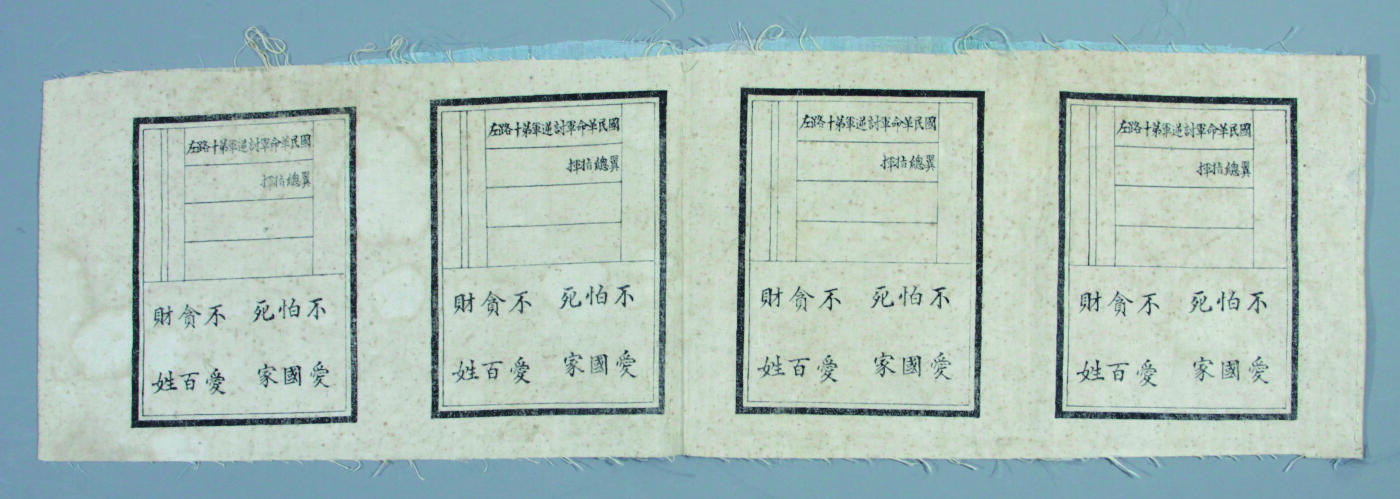 國民革命軍討逆軍第十路左
翼總指揮
不怕死 不貪財
愛國家 愛百姓
國民革命軍討逆軍第十路左
翼總指揮
不怕死 不貪財
愛國家 愛百姓
國民革命軍討逆軍第十路左
翼總指揮
不怕死 不貪財
愛國家 愛百姓
國民革命軍討逆軍第十路左
翼總指揮
不怕死 不貪財
愛國家 愛百姓